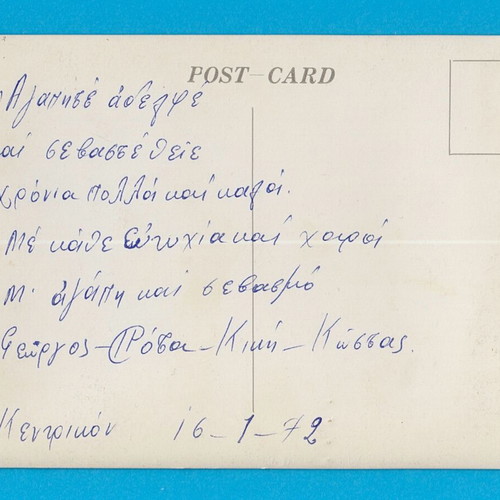 POST CARD
Αγαπητέ αδελφέ
και σεβαστέ θείε
χρόνια πολλά και καλά.
Μέ κάθε Εὐτυχία και χαρά
Μ' ἀγάπη και σεβασμό
Γεώργος - Ρόζα - Κική - Κώστας.
Κεντρικόν 16-1-72